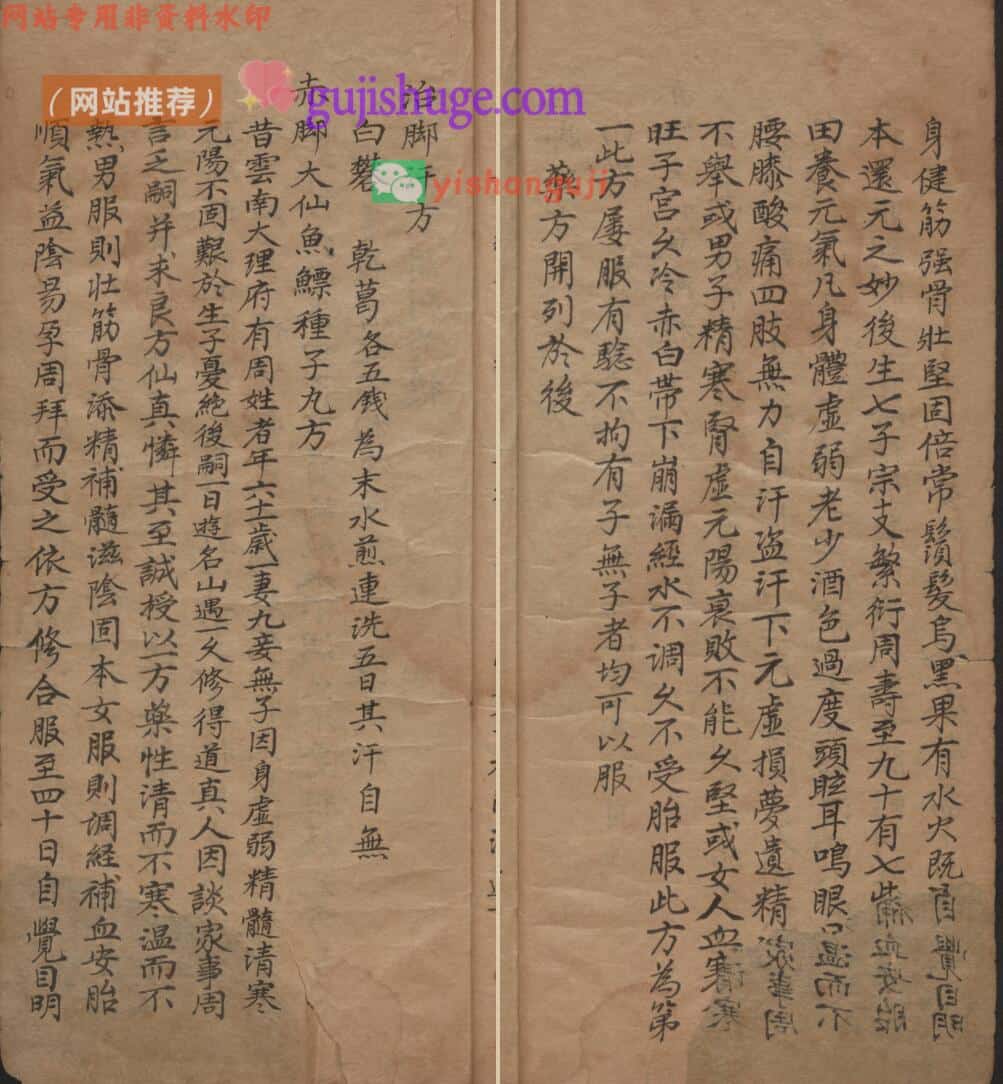 网站专用非资料水印
（网站推荐）
gujishuge.com
yishonguji
治脚方
白礬 乾葛各五錢為末水煎連洗五日其汗自無
赤脚大仙魚鰾種子丸方
昔雲南大理府有周姓者年六十一歲一妻九妾無子因身虛弱精髓清寒
元陽不固艱於生子憂絶後嗣一日遊名山遇一久修得道真人因談家事周
言之嗣并求良方仙真憐其至誠授以一方藥性清而不寒温而不
熱男服則壯筋骨添精補髓滋陰固本女服則调経補血安胎
順氣益陰易孕周拜而受之依方修合服至四十日自覺目明
身健筋强骨壯堅固倍常鬚髮烏黑果有水火既
本還元之妙後生七子宗支繁衍周壽至九十有七
田養元氣凡身體虛弱老少酒色過度頭眩耳鳴眼
腰膝酸痛四肢無力自汗盗汗下元虛損夢遺精
不舉或男子精寒腎虛元陽衰敗不能久堅或女人血寒
旺子宮久冷赤白帶下崩漏經水不调久不受胎服此方為第
一此方屡服有騐不拘有子無子者均可以服
藥方開列於後